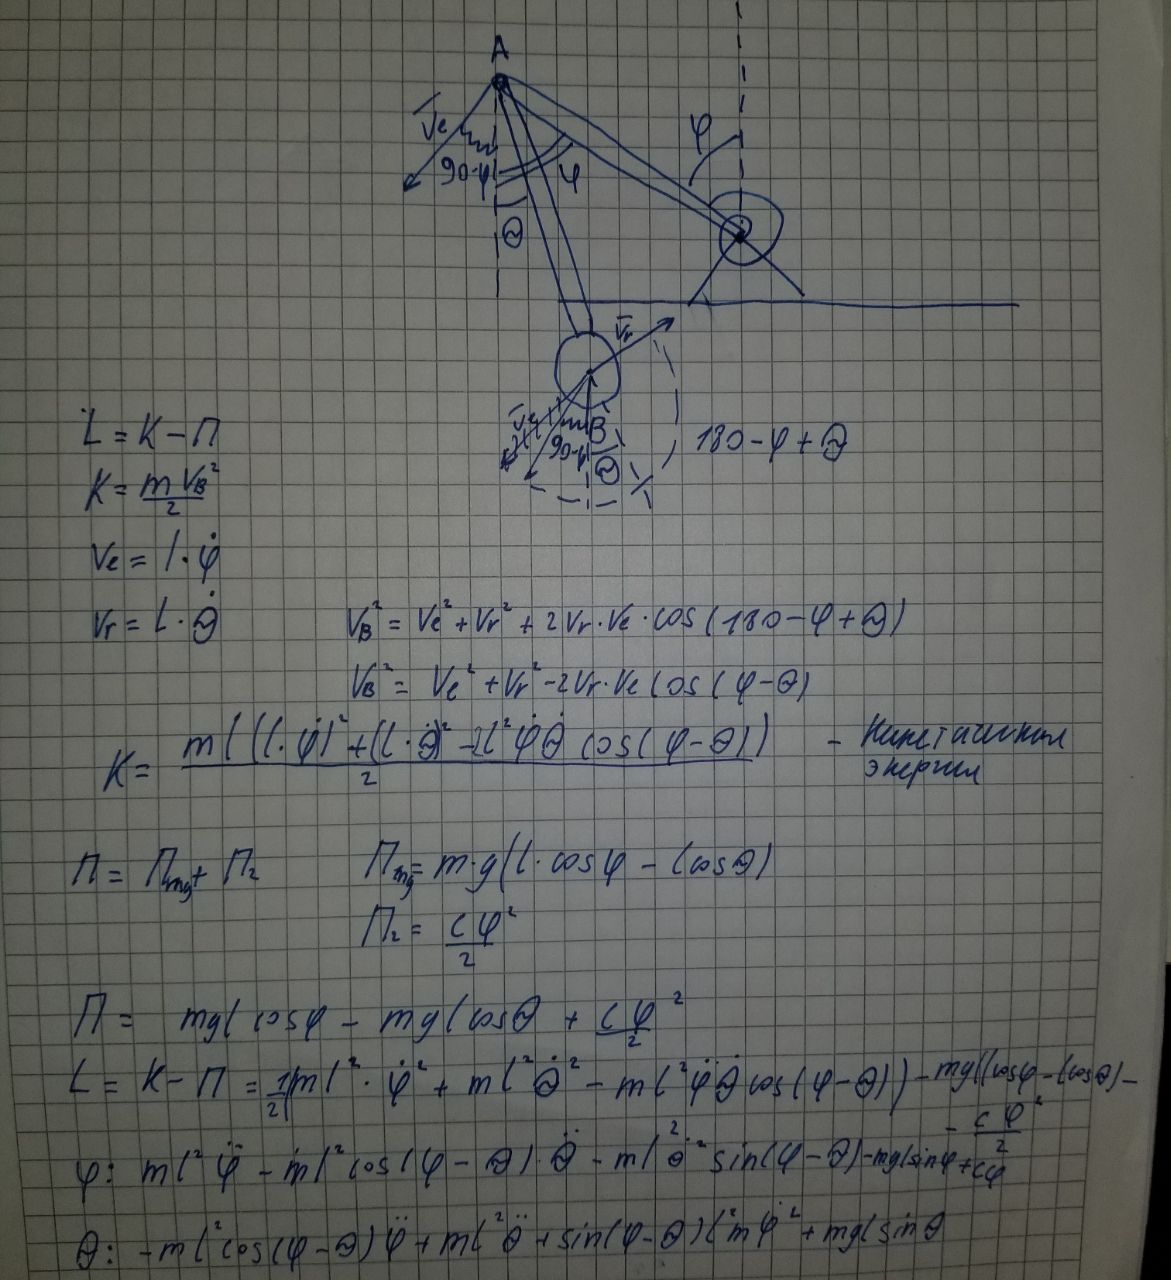 A
V̄e
φ
90-φ
φ
Θ
V̄r
V̄e
B
90-φ
Θ
180-φ+Θ
L = K - П
K = m V_B² / 2
Ve = l · φ̇
Vr = l · Θ̇
V_B² = Ve² + Vr² + 2Vr·Ve·cos(180-φ+Θ)
V_B² = Ve² + Vr² - 2Vr·Ve cos(φ-Θ)
K = m((l·φ̇)² + (l·Θ̇)² - 2l²φ̇Θ̇ cos(φ-Θ)) / 2 - Кинетическая
энергия
П = П_mg + П₂
П_mg = m·g(l·cosφ - lcosΘ)
П₂ = cφ² / 2
П = mgl cosφ - mgl cosΘ + cφ² / 2
L = K - П = 1/2(ml²·φ̇² + ml²Θ̇² - ml²φ̇Θ̇ cos(φ-Θ)) - mg(lcosφ - lcosΘ) -
- cφ² / 2
φ: ml²φ̈ - ml²cos(φ-Θ)·Θ̈ - ml²Θ̇² sin(φ-Θ) - mglsinφ + cφ
Θ: -ml²cos(φ-Θ)φ̈ + ml²Θ̈ + sin(φ-Θ)l²mφ̇² + mglsinΘ